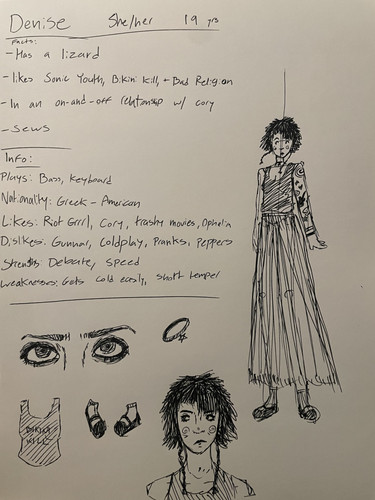 Denise She/her 19 yrs
Facts:
- Has a lizard
- likes Sonic Youth, Bikini Kill, + Bad Religion
- In an on-and-off relationship w/ cory
- sews
Info:
Plays: Bass, Keyboard
Nationality: Greek-American
Likes: Riot Grrrl, Cory, trashy movies, Ophelia
Dislikes: Gunnar, Coldplay, Pranks, Peppers
Strengths Debate, speed
Weaknesses: Gets cold easily, short temper
BIKINI
KILL